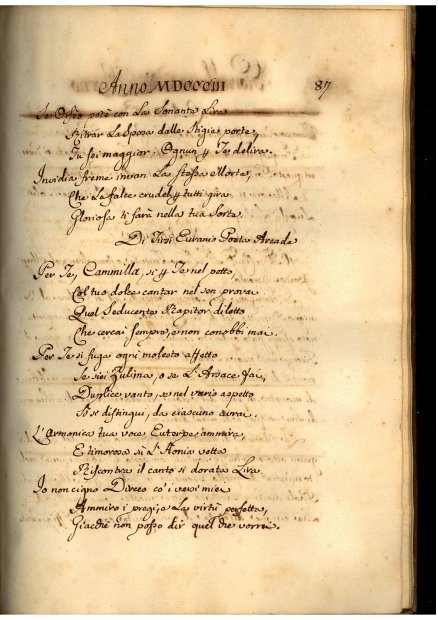 Anno MDCCCIII 87
Se Orfeo potè con La Sonante Lira
Ritrar La Sposa dalle Stigie porte,
Tu sei maggior. Ognun p Te delira.
Invidia freme invan La stessa Morte,
Che La falce crudel p tutti gira
Gloriosa ti farà nella tua Sorte.
Di Tirsi Euranio Poeta Arcade
Per Te, Cammilla, si p Te nel petto,
Col tuo dolce cantar nel sen provai
Quel Seducente Rapitor diletto
Che cercai sempre, e non conobbi mai.
Per Te si fuga ogni molesto affetto
Se sei Zulima, o se L'Arsace fai,
Duplice vanto, e nel vario aspetto
distingui, da ciascino avrai.
L'armonica tua voce Euterpe ammira,
E timorosa si L'Aonia vetta
Riscontra il canto si dorata Lira.
Io non cigno Dirceo co' i versi miei
Ammiro i pregi, e La virtù perfetta,
Giacchè non posso dir quel che vorrei.